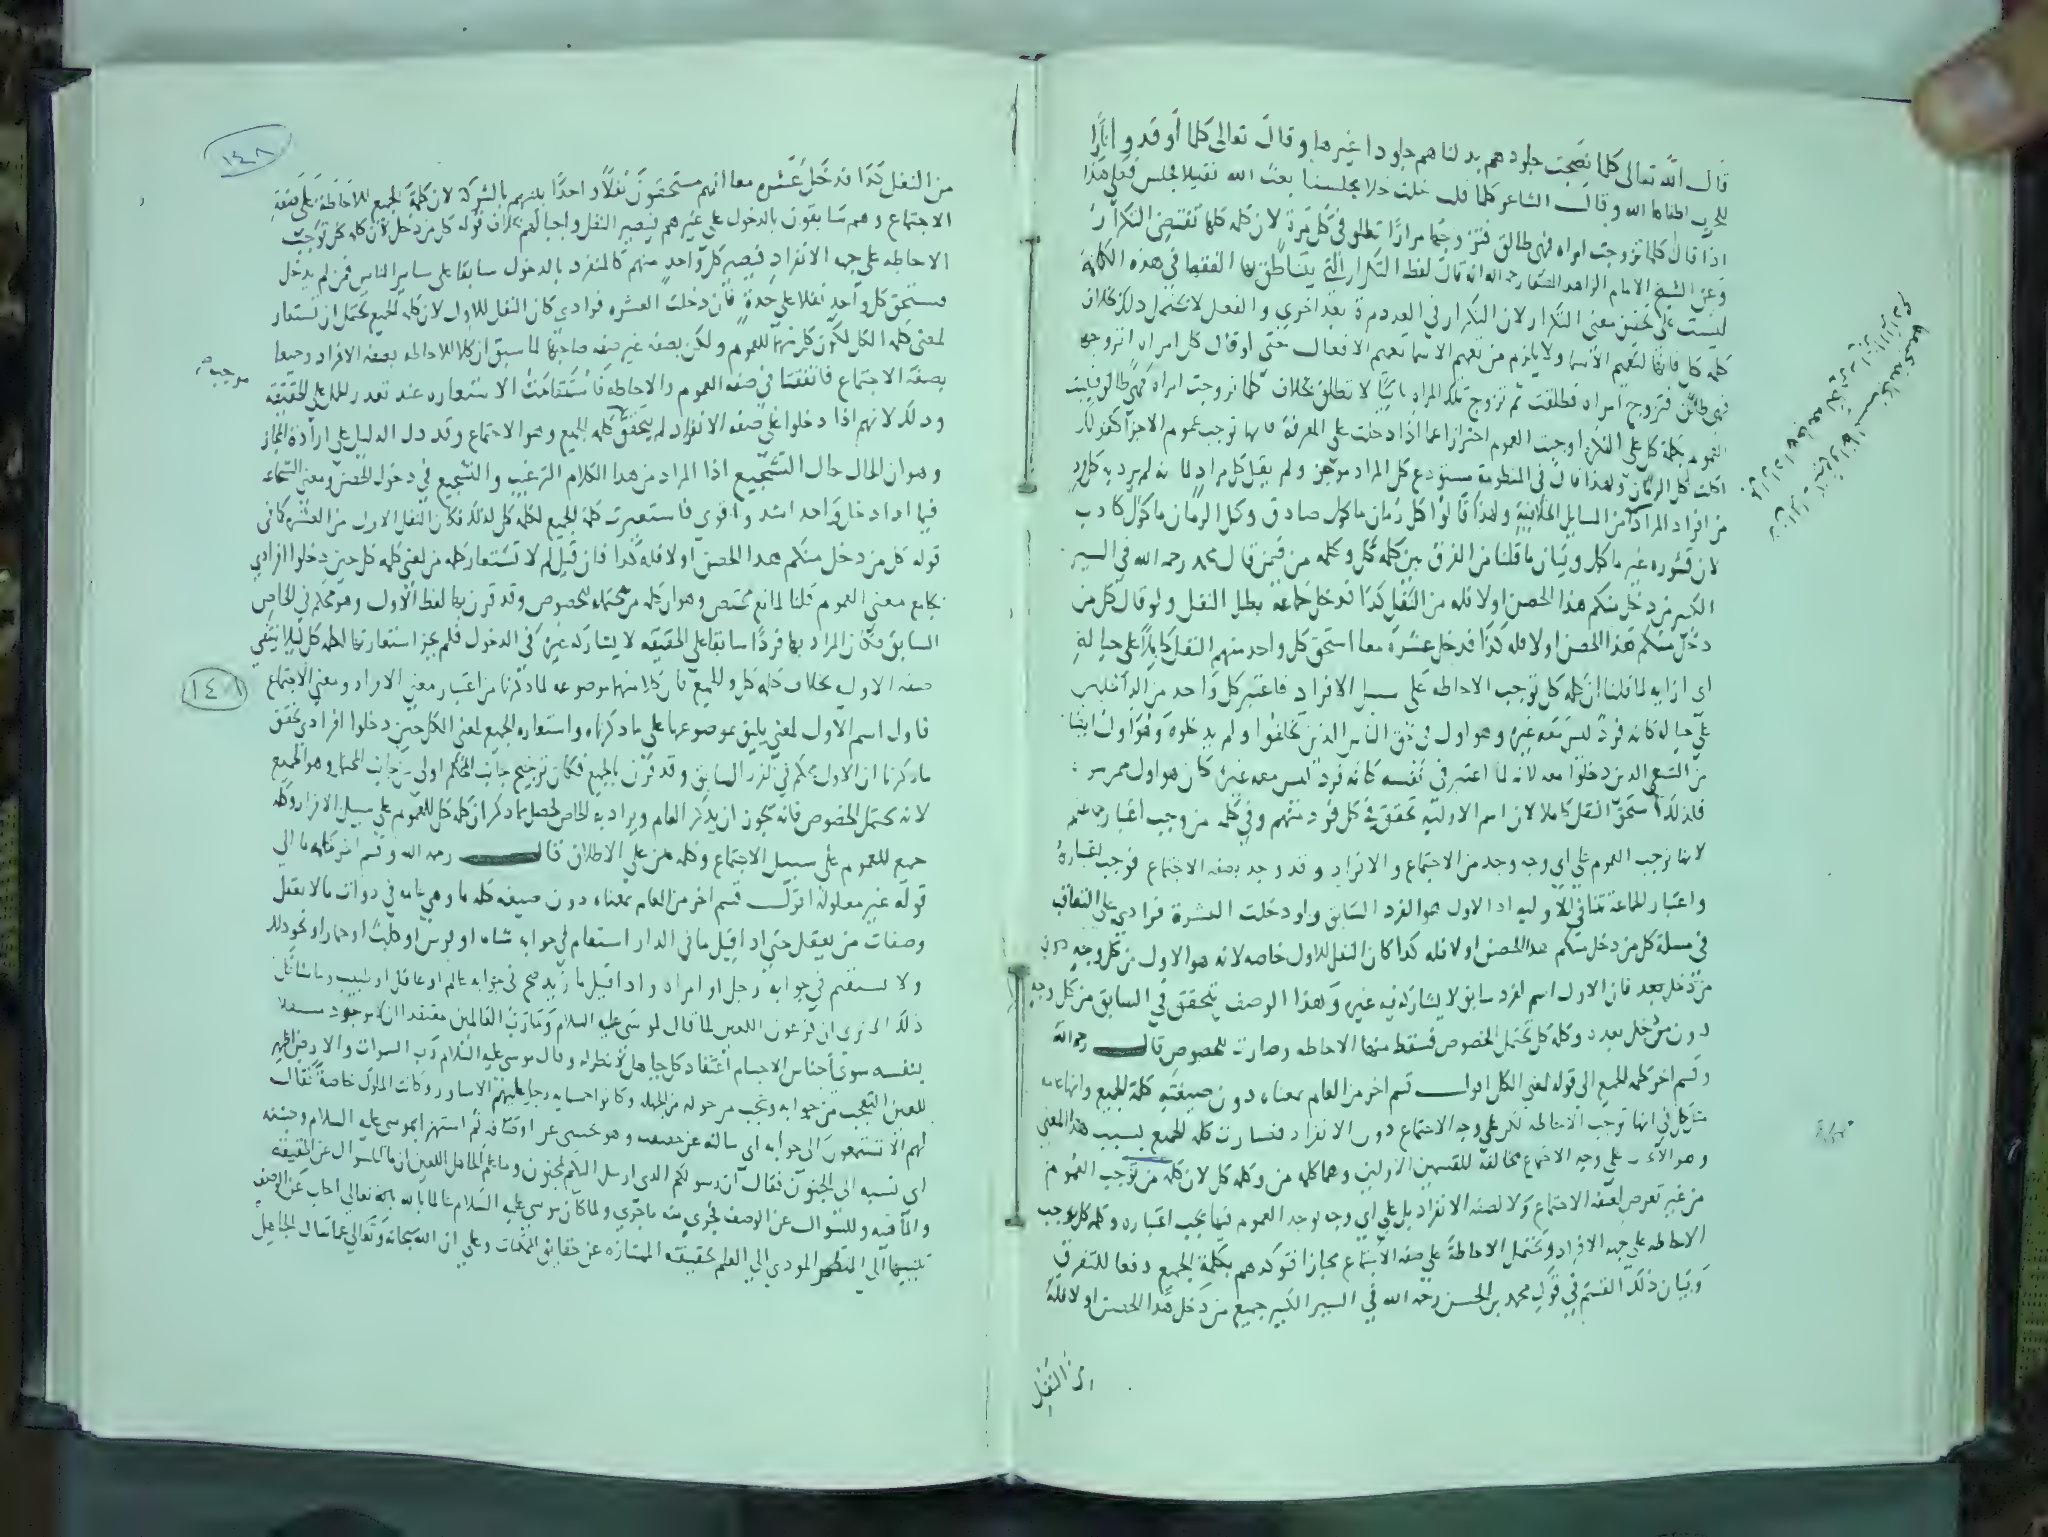 قال الله تعالى كلما نضجت جلودهم بدلناهم جلودا غيرها وقال تعالى كلما أوقدوا نارا
للحرب اطفاها الله وقال الشاعر كلما قلت خلت خلا مجلسنا بعث الله ثقيلا فجلس فعلى هذا
اذا قال كلما تزوجت امراه فهي طالق فتزوجها مرارا تطلق في كل مرة لان كلمه كلما تقتضي التكرار
وعن الشيخ الامام الزاهد الصفار رحمه الله انه قال لفظ التكرار التي يتناطق بها الفقها في هذه الكلمة
ليست على تحقق معنى التكرار لان التكرار في العدد مرة بعد اخرى والفعل لا يحتمل ذلك بخلاف
كلمه كل فانها لتعميم الاسما ولا يلزم من تعميم الاسما تعميم الافعال حتى لو قال كل امراه اتزوجها
فهي طالق فتزوج امراه فطلقت ثم تزوج تلك المراه ثانيا لا تطلق بخلاف كلما تزوجت امراه فهي طالق
كلمة كل على النكره اوجبت العموم احترازا عما اذا دخلت على المعرفة فانها توجب عموم الاجزا كقولك
اكلت كل الرمان ولهذا قال في المنظومة مستودع كل المراد موجز ولم يقل كل مراد لما انه لم يرد به كل فرد
من افراد المراد من المسايل الخلافية ولهذا قالوا كل رمان ماكول صادق وكل الرمان ماكول كاذب
لان قشوره غير ماكول وبيان ما قلنا من الفرق بين كلمه كل وكلمه من فيمن قال محمد رحمه الله في السير
الكبير من دخل منكم هذا الحصن اولا فله من النفل كذا فدخل جماعة بطل النفل ولو قال كل من
دخل منكم هذا الحصن اولا فله كذا فدخل عشرة معا استحق كل واحد منهم النفل كاملا على حياله
اي ازايه لما قلنا ان كلمه كل توجب الاحاطه على سبيل الافراد فاعتبر كل واحد من الداخلين
على حياله كانه فرد ليس معه غيره وهو اول في حق الناس الذين تخلفوا ولم يدخلوه وهو اول ايضا
من التسع الذين دخلوا معه لانه لما اعتبر في نفسه كانه فرد ليس معه غيره كان هو اول
فلذلك استحق النفل كاملا لان اسم الاولية تحقق في كل فرد منهم وفي كلمه من وجب اعتبار جماعتهم
لانها توجب العموم على اي وجه وجد من الاجتماع والانفراد وقد وجد بصفه الاجتماع فوجب اعتباره
واعتبار الجماعة تنافي الاوليه اذ الاول هو الفرد السابق ولو دخلت العشرة فرادى على التعاقب
في مسلة كل من دخل منكم هذا الحصن اولا فله كذا كان النفل للاول خاصه لانه هو الاول من كل وجه دون
من دخل بعد فان الاول اسم لفرد سابق لا يشاركه فيه غيره وهذا الوصف يتحقق في السابق من كل وجه
دون من دخل بعده وكلمه كل تحتمل الخصوص فسقط منها الاحاطه وصارت للخصوص قال رحمه الله
وقسم اخر كلمه الجميع الى قوله لمعنى الكل اقول قسم اخر من العام بمعناه دون صيغته كلمة الجميع وانها عامه
مثل كل في انها توجب الاحاطه لكن على وجه الاجتماع دون الانفراد فصارت كلمه الجميع بسبب هذا المعنى
وهو على وجه الاجتماع مخالفة للقسمين الاولين وهما كلمه من وكلمه كل لان كلمه من توجب العموم
من غير تعرض لصفه الاجتماع ولا لصفه الانفراد بل على اي وجه يوجد العموم فيها يجب اعتباره وكلمه كل توجب
الاحاطه على جهه الافراد وتحتمل الاحاطة على صفه الاجتماع مجازا فتوكدهم بكلمة الجميع دفعا للتفرق
وبيان ذلك القسم في قول محمد بن الحسن رحمه الله في السير الكبير جميع من دخل هذا الحصن اولا فله
من النفل
١٤٨
من النفل كذا فدخل عشره معا انهم مستحقون نفلا واحدا بينهم بالشركة لان كلمة الجميع للاحاطة على صفة
الاجتماع وهم سابقون بالدخول على غيرهم فيصير النفل واجبا لهم بخلاف قوله كل من دخل لان كلمه كل توجب
الاحاطه على جهه الانفراد فيصير كل واحد منهم كالمنفرد بالدخول سابقا على ساير الناس فمن لم يدخل
فيستحق كل واحد نفلا على حدة فان دخلت العشره فرادى كان النفل للاول لان كلمة الجميع تحتمل ان تستعار
لمعنى كلمه الكل لكون كل منهما للعموم ولكن بصفه غير صفه صاحبتها لما سبق ان كلا للاحاطه بصفه الافراد وجميعا
بصفة الاجتماع فاتفقتا في صفه العموم والاحاطه فاستقامت الاستعاره عند تعذر العمل على الحقيقة
وذلك لانهم اذا دخلوا على صفه الانفراد لم يتحقق كلمه الجميع وهو الاجتماع وقد دل الدليل على ارادة المجاز
وهو ان الحال حال التشجيع اذا المراد من هذا الكلام الترغيب والتشجيع في دخول الحصن ومعنى الشجاعه
فيما اذا دخل واحد اشد واقوى فاستعيرت كلمة الجميع لكلمه كل لذلك فكان النفل للاول من العشره كما في
قوله كل من دخل منكم هذا الحصن اولا فله كذا فان قيل لم لا تستعار كلمه من لمعنى كلمه كل حين دخلوا افرادي
بجامع معنى العموم قلنا لمانع مختص وهو ان كلمه من محتمله للخصوص وقد قرن بها لفظ الاول وهو محكم في الخاص
السابق فكان المراد بها فردا سابقا على الحقيقه لا يشاركه غيره في الدخول فلم يجز استعارتها لكلمه كل ليلا ينتفي
صفه الاوليه بخلاف كلمه كل والجميع فان كلا منهما موضوعه لما ذكرنا من اعتبار معنى الافراد ومعنى الاجتماع
١٤٨
فاول اسم الاول لمعنى يليق بموضوعها على ما ذكرناه واستعاره الجميع لمعنى الكل حين دخلوا افرادى تحقق
ما ذكرنا ان الاول محكم في الفرد السابق وقد قرن بالجميع فكان ترجيح جانب المحكم اولى من جانب المحتمل وهو الجميع
لانه يحتمل الخصوص فانه يجوز ان يذكر العام ويراد به الخاص فحصل مما ذكر ان كلمه كل للعموم على سبيل الافراد وكلمه
جميع للعموم على سبيل الاجتماع وكلمه من على الاطلاق قال رحمه الله وقسم اخر كلمه ما الى
قوله غير معلولة اقول قسم اخر من العام بمعناه دون صيغه كلمه ما وهي عامه في ذوات ما لا يعقل
وصفات من يعقل حتى اذا قيل ما في الدار استقام في جوابه شاه او فرس او كلب او حمار او نحو ذلك
ولا يستقيم في جوابه رجل او امراه واذا قيل ما زيد صح في جوابه عالم او عاقل او طبيب وما شاكل
ذلك الا ترى ان فرعون اللعين لما قال لموسى عليه السلام وما رب العالمين معتقدا ان لا موجود مستقلا
بنفسه سوى اجناس الاجسام اعتقاد كل جاهل لا نظر له وقال موسى عليه السلام رب السموات والارض اظهر
اللعين التعجب من جوابه وتعجب من حوله من الجهله وكانوا خمسمايه رجل عليهم الاساور وكانت للملوك خاصة فقال
لهم الا تستمعون الى جوابه اي سالته عن حقيقته وهو يجيبني عن اوصافه ثم استهزا بموسى عليه السلام وجننه
اي نسبه الى الجنون فقال ان رسولكم الذي ارسل اليكم لمجنون وما يعلم الجاهل اللعين ان ما للسوال عن الحقيقه
والماهيه وللسوال عن الوصف فجرى منه ما جرى ولما كان موسى عليه السلام عالما بالله تعالى اجاب عن الوصف
تنبيها الى النظر المودي الى العلم بحقيقته الممتازه عن حقايق الممكنات وعلى ان الله سبحانه وتعالى عما سال الجاهل